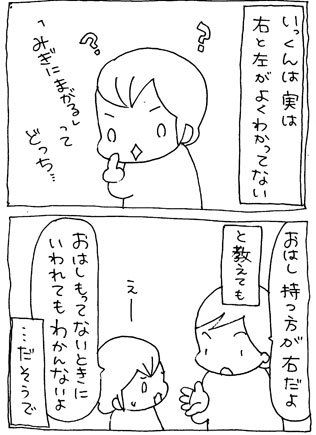 いっくんは 実は
右と左がよくわかってない
?
?
「みぎにまがる」って
どっち…
おはし 持つ方が右だよ
と教えても
えー
おはしもってないときに
いわれてもわかんないよ
…だそうで